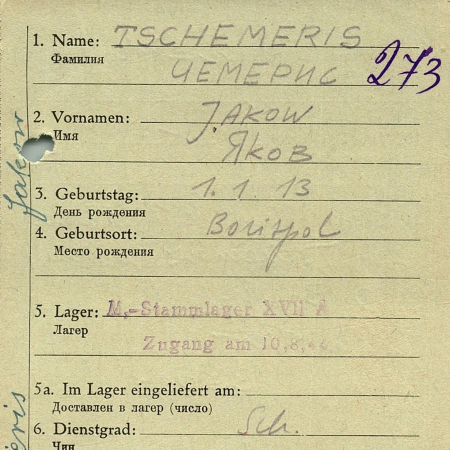 1. Name: TSCHEMERIS
Фамилия ЧЕМЕРИС 273
2. Vornamen: JAKOW
Имя ЯКОВ
3. Geburtstag: 1. 1. 13
День рождения
4. Geburtsort: Borispol
Место рождения
5. Lager: M.-Stammlager XVII A
Лагерь
Zugang am 10.8.
5a. Im Lager eingeliefert am:
Доставлен в лагерь (число)
6. Dienstgrad: Sch.
Чин
Jakow
eris